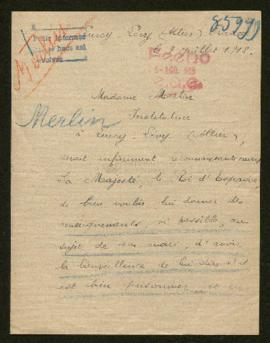 Lurcy-Lévy (Allier)
85992
le 2 juillet 1918.
Madame Merlin
Merlin
Institutrice
à Lurcy-Lévy (Allier),
serait infiniment reconnaissante envers
Sa Majesté, le Roi d'Espagne,
de bien vouloir lui donner des
renseignements si possible, au
sujet de son mari, d'avoir
la bienveillance de lui dire s'il
est bien prisonnier et